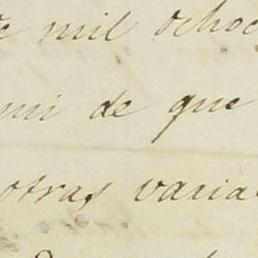 de mil ochoc
mi de que
otras varia